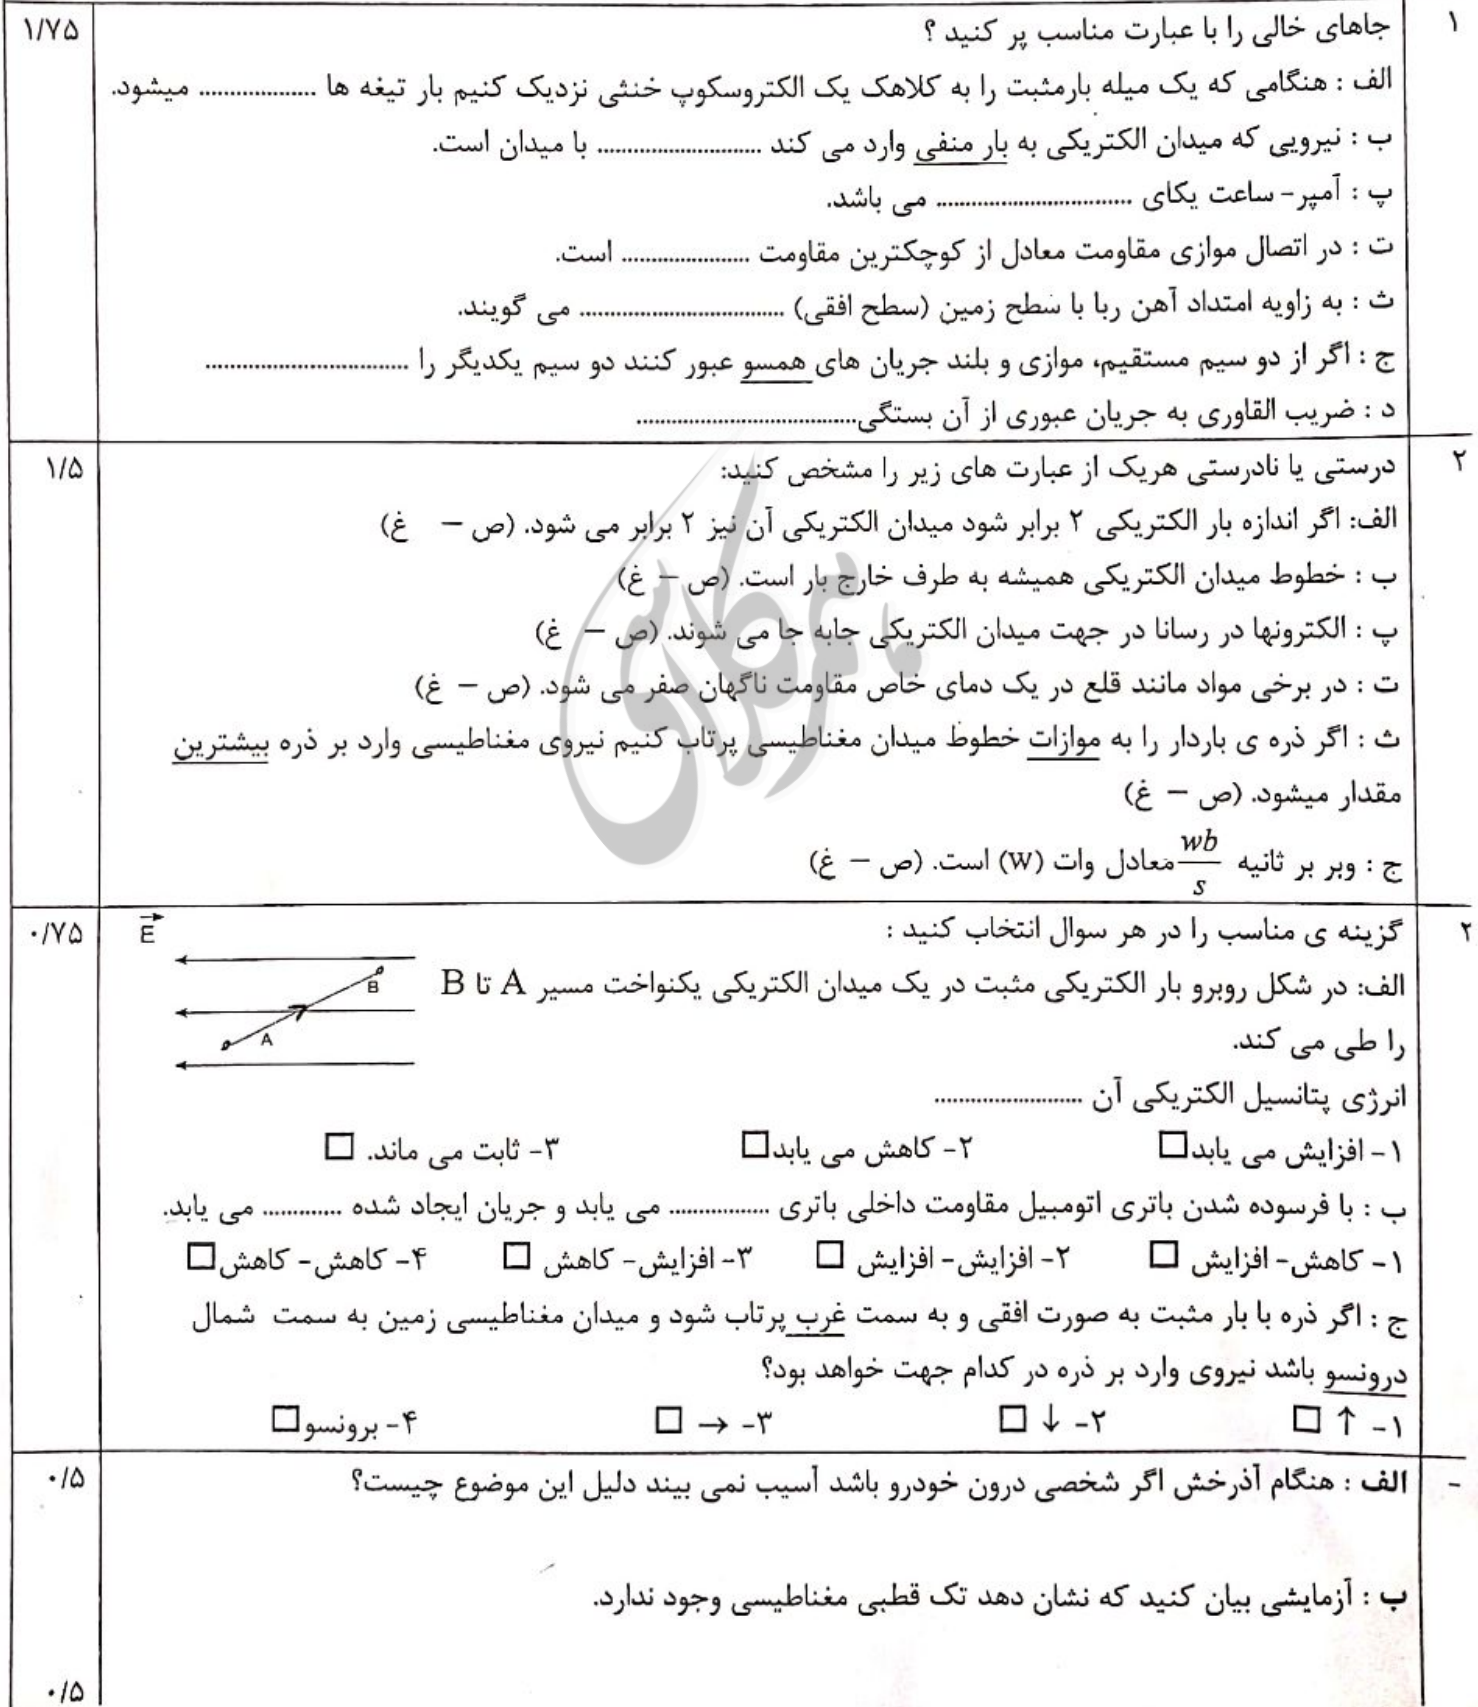 ۱
جاهای خالی را با عبارت مناسب پر کنید ؟
۱/۷۵
الف : هنگامی که یک میله بارمثبت را به کلاهک یک الکتروسکوپ خنثی نزدیک کنیم بار تیغه ها .................... میشود.
ب : نیرویی که میدان الکتریکی به بار منفی وارد می کند ............................ با میدان است.
پ : آمپر- ساعت یکای ................................. می باشد.
ت : در اتصال موازی مقاومت معادل از کوچکترین مقاومت ...................... است.
ث : به زاویه امتداد آهن ربا با سطح زمین (سطح افقی) ................................... می گویند.
ج : اگر از دو سیم مستقیم، موازی و بلند جریان های همسو عبور کنند دو سیم یکدیگر را ...................................
د : ضریب القاوری به جریان عبوری از آن بستگی......................................
۲
درستی یا نادرستی هریک از عبارت های زیر را مشخص کنید:
۱/۵
الف: اگر اندازه بار الکتریکی ۲ برابر شود میدان الکتریکی آن نیز ۲ برابر می شود. (ص – غ)
ب : خطوط میدان الکتریکی همیشه به طرف خارج بار است. (ص – غ)
پ : الکترونها در رسانا در جهت میدان الکتریکی جابه جا می شوند. (ص – غ)
ت : در برخی مواد مانند قلع در یک دمای خاص مقاومت ناگهان صفر می شود. (ص – غ)
ث : اگر ذره ی باردار را به موازات خطوط میدان مغناطیسی پرتاب کنیم نیروی مغناطیسی وارد بر ذره بیشترین
مقدار میشود. (ص – غ)
ج : وبر بر ثانیه wb/s معادل وات (W) است. (ص – غ)
۲
گزینه ی مناسب را در هر سوال انتخاب کنید :
۰/۷۵
E
الف: در شکل روبرو بار الکتریکی مثبت در یک میدان الکتریکی یکنواخت مسیر A تا B
B
A
را طی می کند.
انرژی پتانسیل الکتریکی آن .........................
۱- افزایش می یابد□ ۲- کاهش می یابد□ ۳- ثابت می ماند. □
ب : با فرسوده شدن باتری اتومبیل مقاومت داخلی باتری ................. می یابد و جریان ایجاد شده ............. می یابد.
۱- کاهش- افزایش □ ۲- افزایش- افزایش □ ۳- افزایش- کاهش □ ۴- کاهش- کاهش□
ج : اگر ذره با بار مثبت به صورت افقی و به سمت غرب پرتاب شود و میدان مغناطیسی زمین به سمت شمال
درونسو باشد نیروی وارد بر ذره در کدام جهت خواهد بود؟
۱- ↑ □ ۲- ↓ □ ۳- → □ ۴- برونسو□
-
الف : هنگام آذرخش اگر شخصی درون خودرو باشد آسیب نمی بیند دلیل این موضوع چیست؟
۰/۵
ب : آزمایشی بیان کنید که نشان دهد تک قطبی مغناطیسی وجود ندارد.
۰/۵